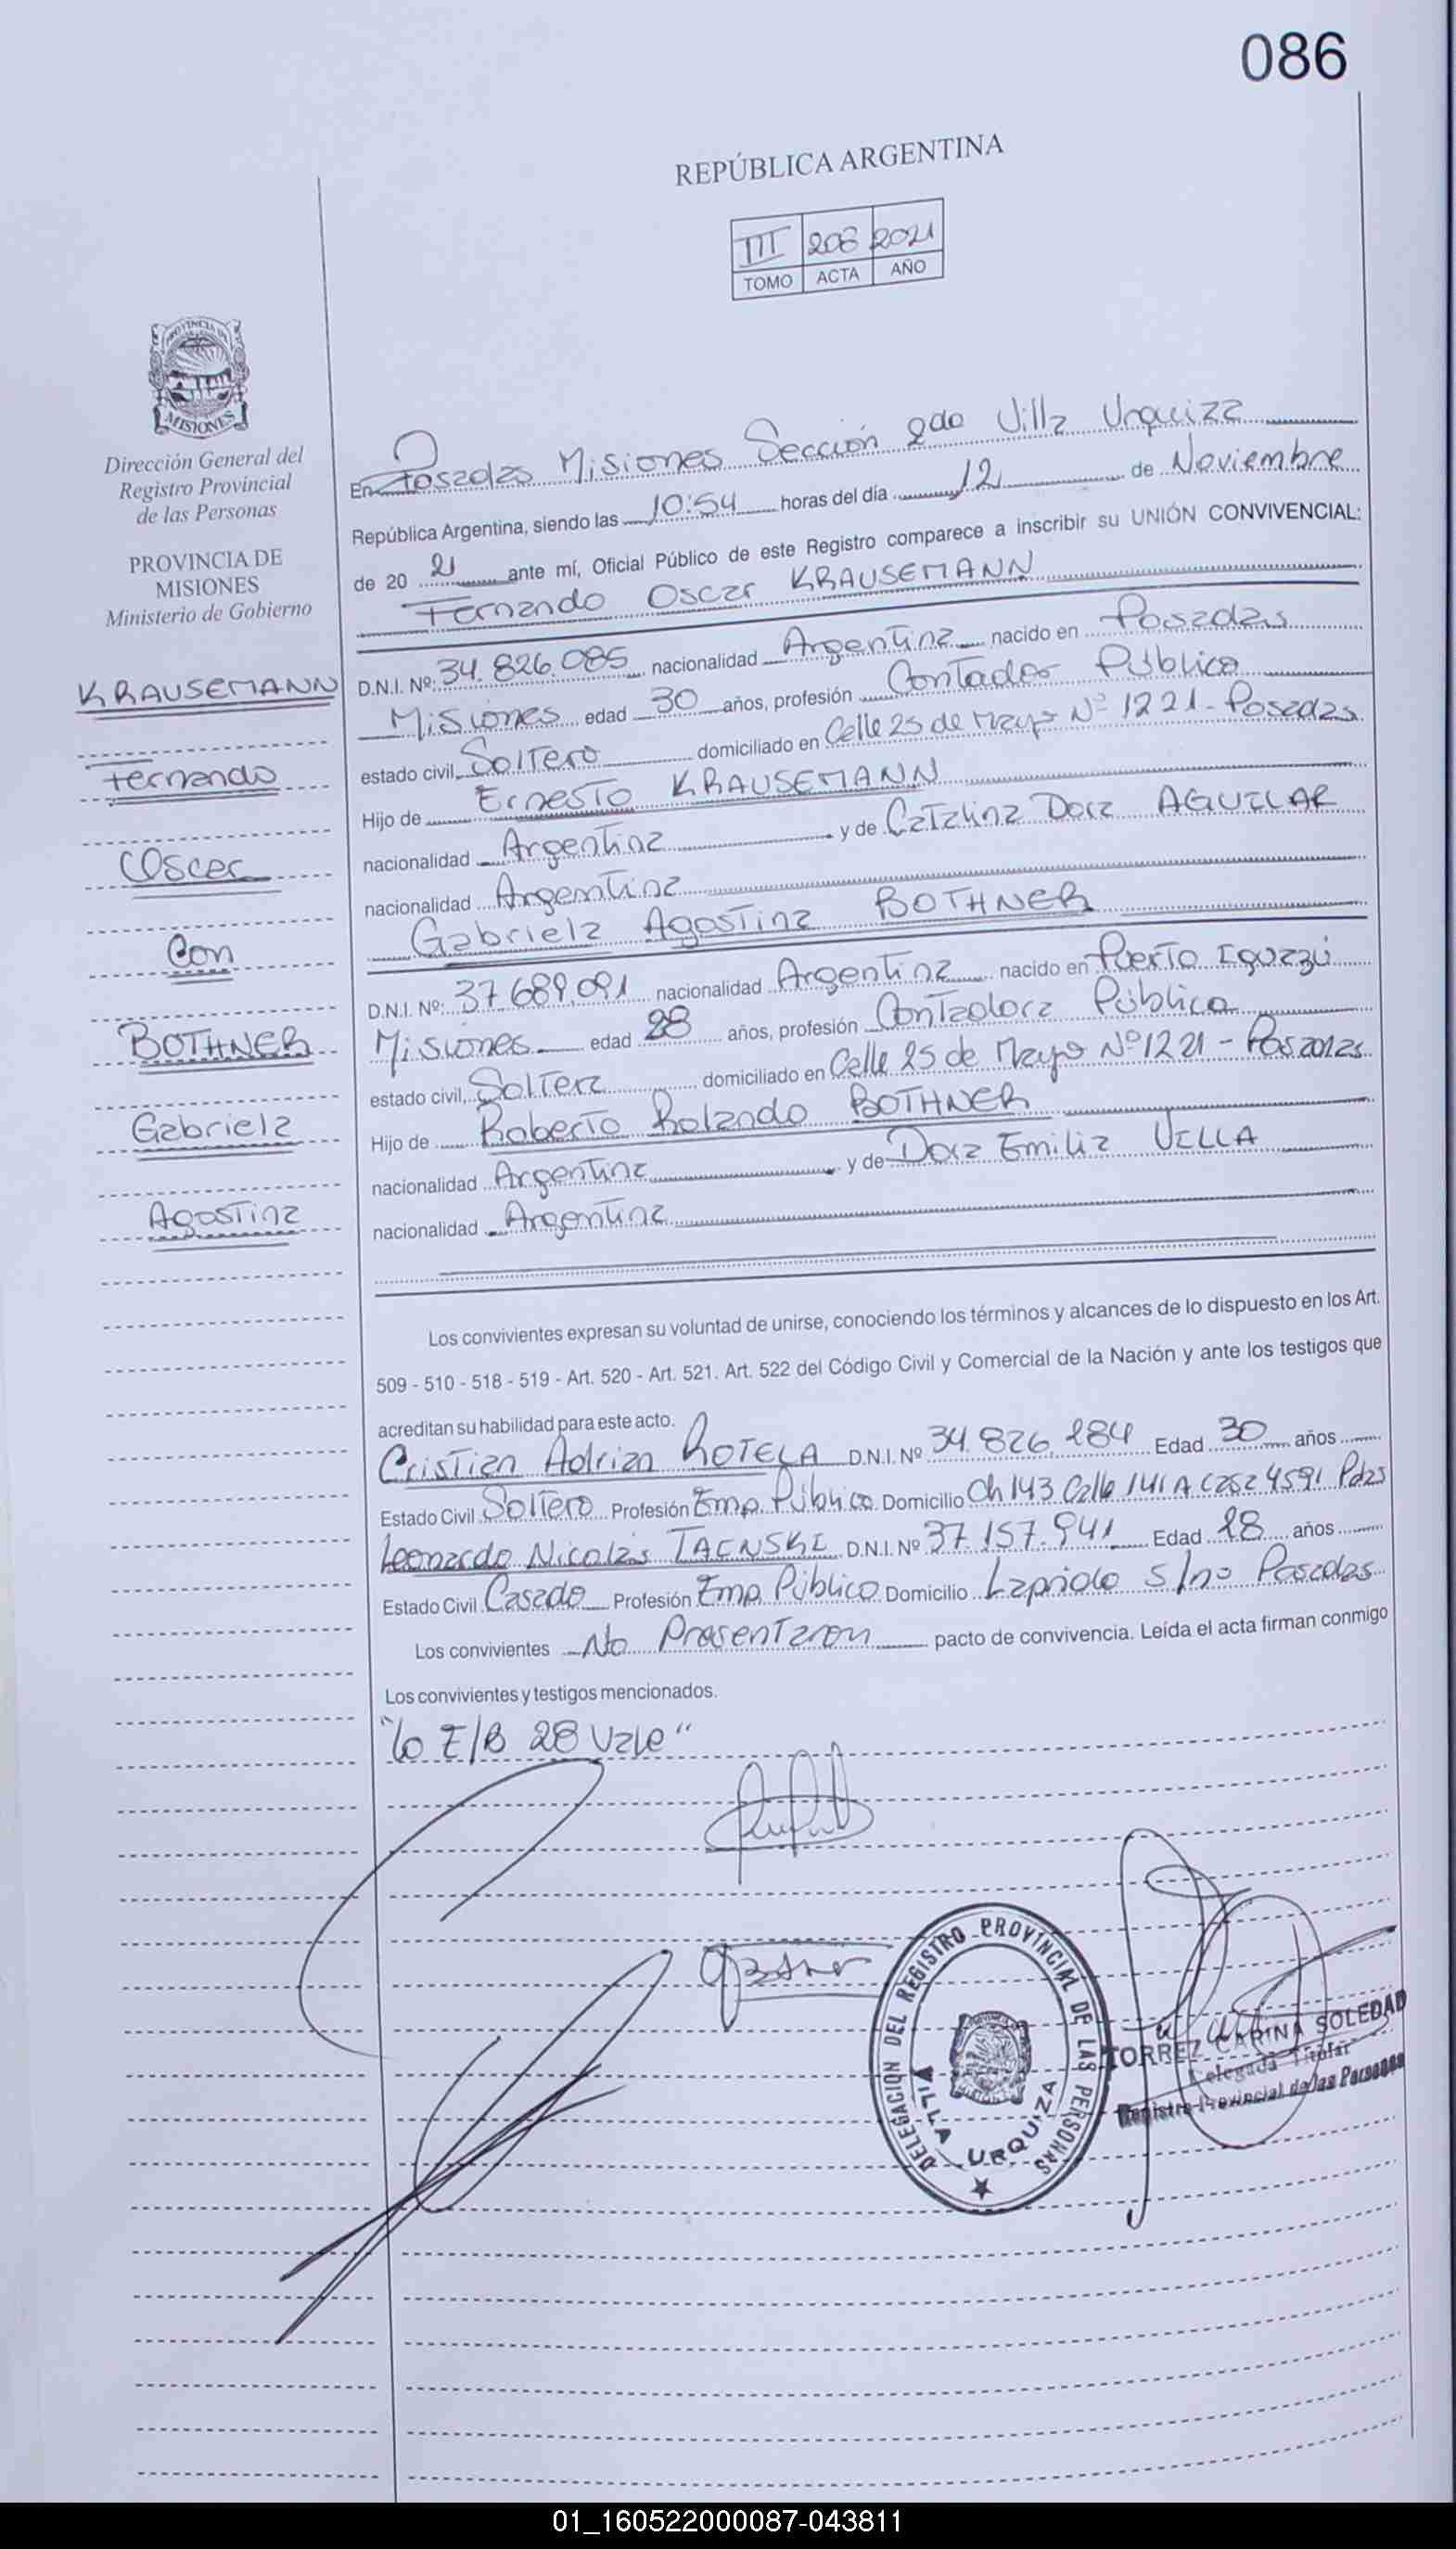 086
REPÚBLICA ARGENTINA
III 206 2021
TOMO ACTA AÑO
PROVINCIA DE
MISIONES
Dirección General del
Registro Provincial
de las Personas
PROVINCIA DE
MISIONES
Ministerio de Gobierno
KRAUSEMANN
Fernando
Oscar
Con
BOTHNER
Gabriela
Agostina
En Posadas Misiones Sección 2da Villa Urquiza
República Argentina, siendo las 10:54 horas del día 12 de Noviembre
de 20 21 ante mí, Oficial Público de este Registro comparece a inscribir su UNIÓN CONVIVENCIAL:
Fernando Oscar KRAUSEMANN
D.N.I. Nº: 34.826.085 nacionalidad Argentina nacido en Posadas
Misiones edad 30 años, profesión Contador Público
estado civil Soltero domiciliado en Calle 25 de Mayo Nº 1221 - Posadas
Hijo de Ernesto KRAUSEMANN
nacionalidad Argentina y de Catalina Dora AGUILAR
nacionalidad Argentina
Gabriela Agostina BOTHNER
D.N.I. Nº: 37.689.091 nacionalidad Argentina nacido en Puerto Iguazú
Misiones edad 28 años, profesión Contadora Pública
estado civil, Soltera domiciliado en Calle 25 de Mayo Nº 1221 - Posadas
Hijo de Roberto Rolando BOTHNER
nacionalidad Argentina y de Dora Emilia VILLA
nacionalidad Argentina
Los convivientes expresan su voluntad de unirse, conociendo los términos y alcances de lo dispuesto en los Art.
509 - 510 - 518 - 519 - Art. 520 - Art. 521. Art. 522 del Código Civil y Comercial de la Nación y ante los testigos que
acreditan su habilidad para este acto.
Cristian Adrian ROTELA D.N.I. Nº 34.826.284 Edad 30 años
Estado Civil Soltero Profesión Emp. Público Domicilio Ch 143 Calle 141 A Casa 4591 Pdas
Leonardo Nicolás TAENSKI D.N.I. Nº 37.157.941 Edad 28 años
Estado Civil Casado Profesión Emp. Público Domicilio Laprida S/no Posadas
Los convivientes No Presentaron pacto de convivencia. Leída el acta firman conmigo
Los convivientes y testigos mencionados.
"lo E/B 28 Vale"
DELEGACION DEL REGISTRO PROVINCIAL DE LAS PERSONAS
VILLA URQUIZA
TORREZ CARINA SOLEDAD
Delegada Titular
Registro Provincial de las Personas
01_160522000087-043811